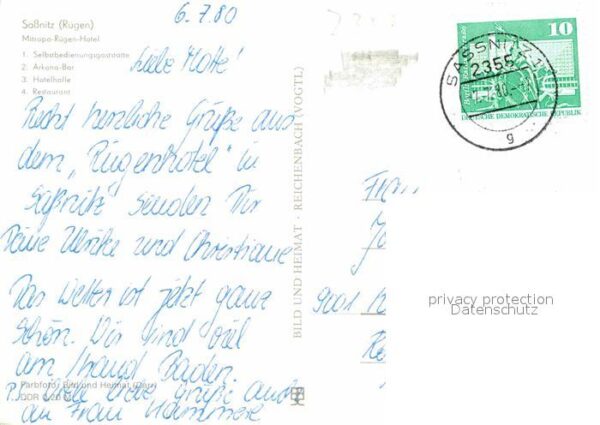 6.7.80
Saßnitz (Rügen)
Mitropa-Rügen-Hotel
1. Selbstbedienungsgaststätte
2. Arkona-Bar
3. Hotelhalle
4. Restaurant
Liebe Motte!
Recht herzliche Grüße aus
dem "Rügenhotel" in
Saßnitz senden Dir
Deine Ulrike und Christiane
Das Wetter ist jetzt ganz
schön. Wir sind viel
am Strand Baden.
P. Viele liebe Grüße auch
an Frau
Farbfoto: Bild und Heimat
DDR 0,20 M
BILD UND HEIMAT · REICHENBACH (VOGTL)
10
SASSNITZ 1
2355
80
g
DEUTSCHE DEMOKRATISCHE REPUBLIK
9001
privacy protection
Datenschutz